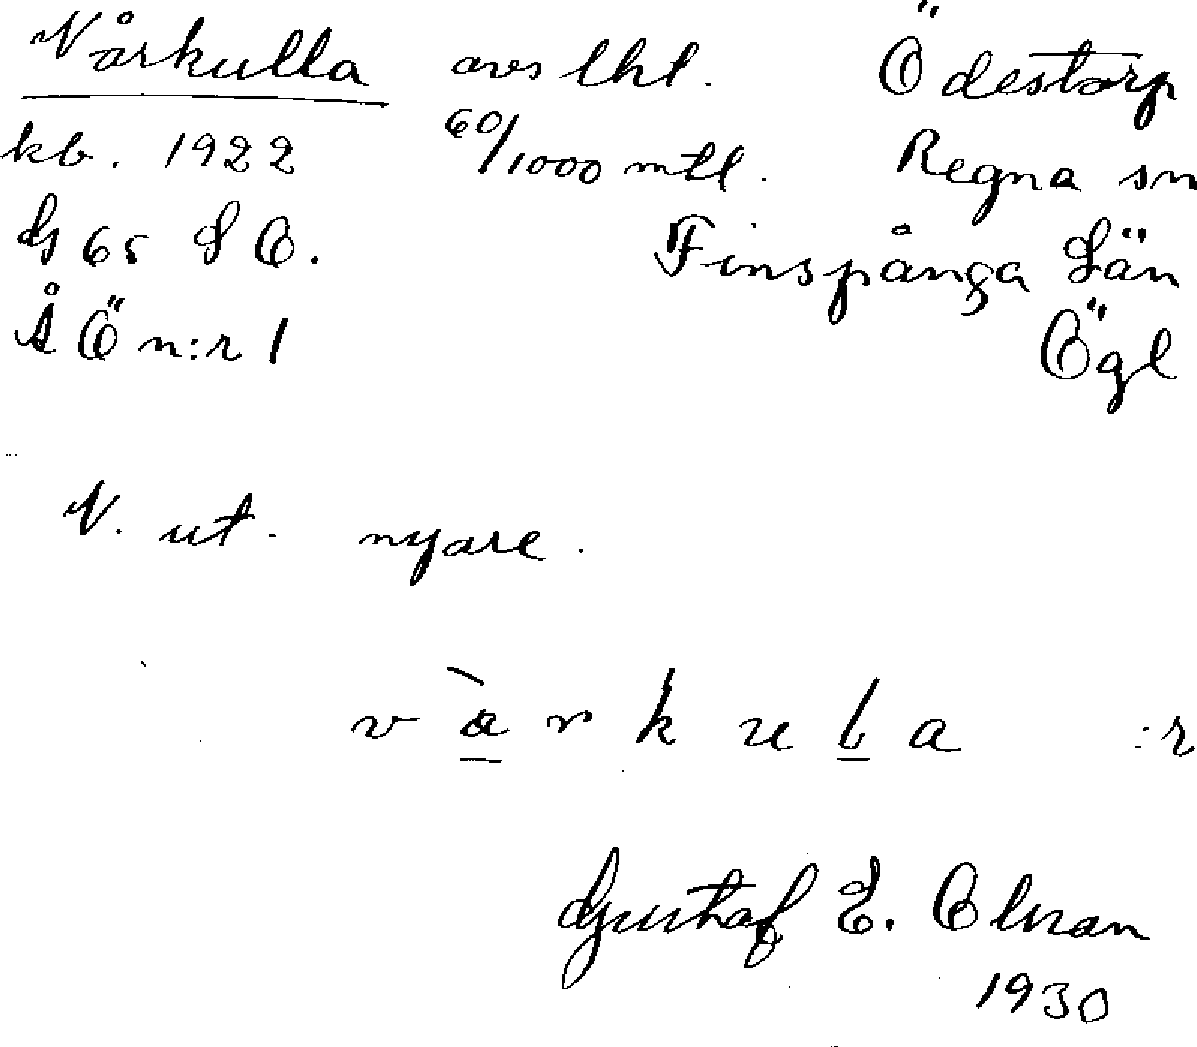 Vårkulla avs lht. Ödestorp
kb. 1922 60/1000 mtl. Regna sn
G 65 S O. Finspånga Län
Å Ö n:r 1 Ögl
V. ut. nyare.
v à r k u l a :r
Gustaf E. Olson
1930